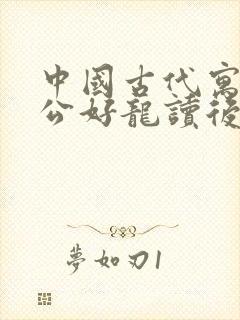 中國古代寓
公好龍讀後
夢如刃1